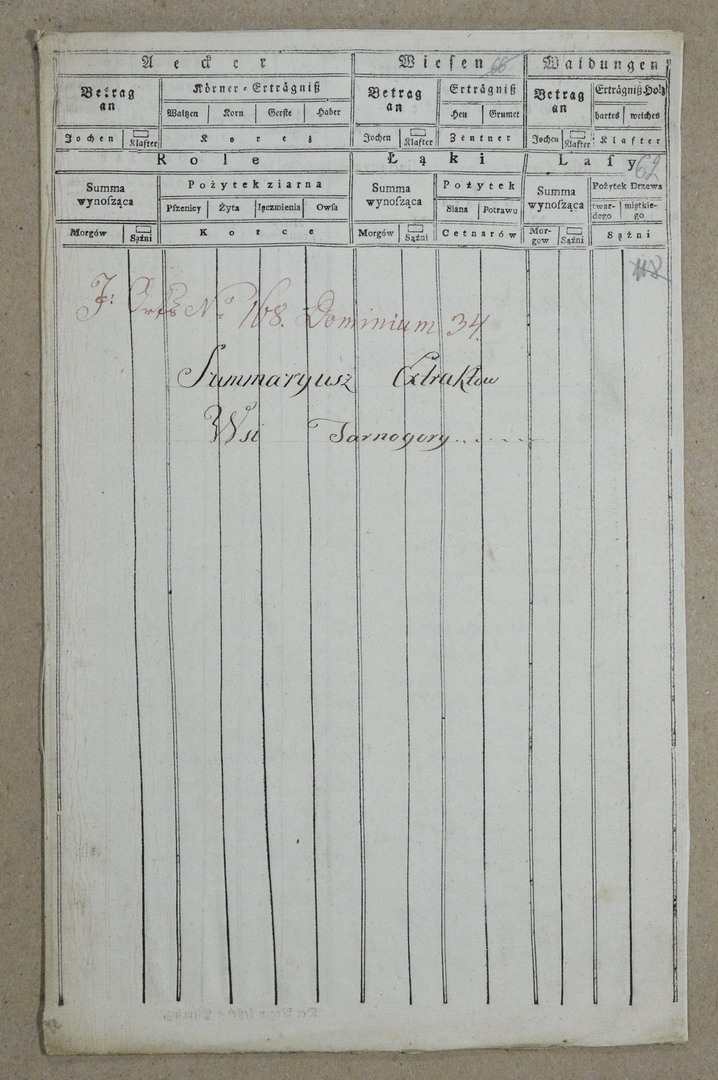 Aecker Wiesen 66 Waldungen
Betrag an Körner-Erträgniß Betrag an Erträgniß Betrag an Erträgniß Holz
Waitzen Korn Gerste Haber Heu Grumet hartes weiches
Jochen Klafter Korez Jochen Klafter Zentner Jochen Klafter Klafter
Role Łąki Lasy 62
Summa wynosząca Pożytek ziarna Summa wynosząca Pożytek Summa wynosząca Pożytek Drzewa
Pszenicy Żyta Ięczmienia Owsa Siana Potrawu twar-dego miętkie-go
Morgów Sążni Korce Morgów Sążni Cetnarów Mor-gow Sążni Sążni
118
N° 168. Dominium 34.
Summaryusz Extraktow
Wsi Tarnogory